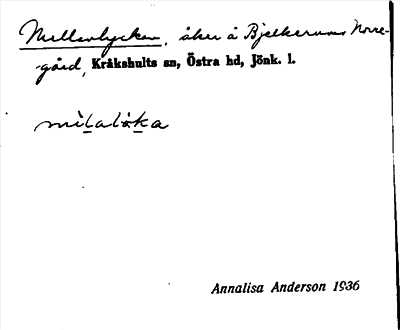 Mellanlycken, åker å Bjelkerums Norre-
gård, Kråkshults sn, Östra hd, Jönk. l.
mèlalòka
Annalisa Anderson 1936